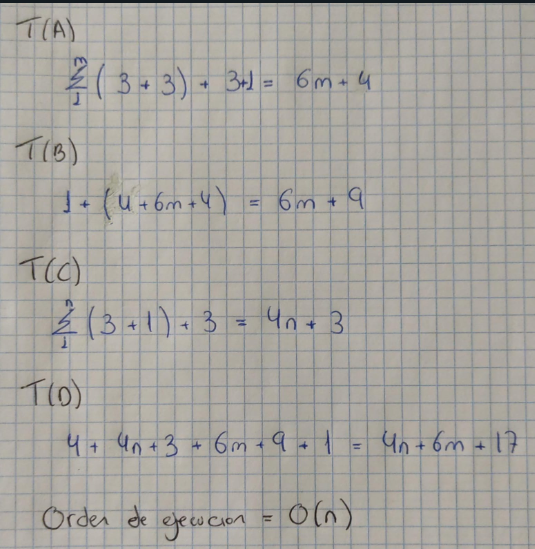 T(A)
m
∑ (3 + 3) + 3+1 = 6m + 4
1
T(B)
1 + (4 + 6m + 4) = 6m + 9
T(C)
n
∑ (3 + 1) + 3 = 4n + 3
1
T(D)
4 + 4n + 3 + 6m + 9 + 1 = 4n + 6m + 17
Orden de ejecucion = O(n)